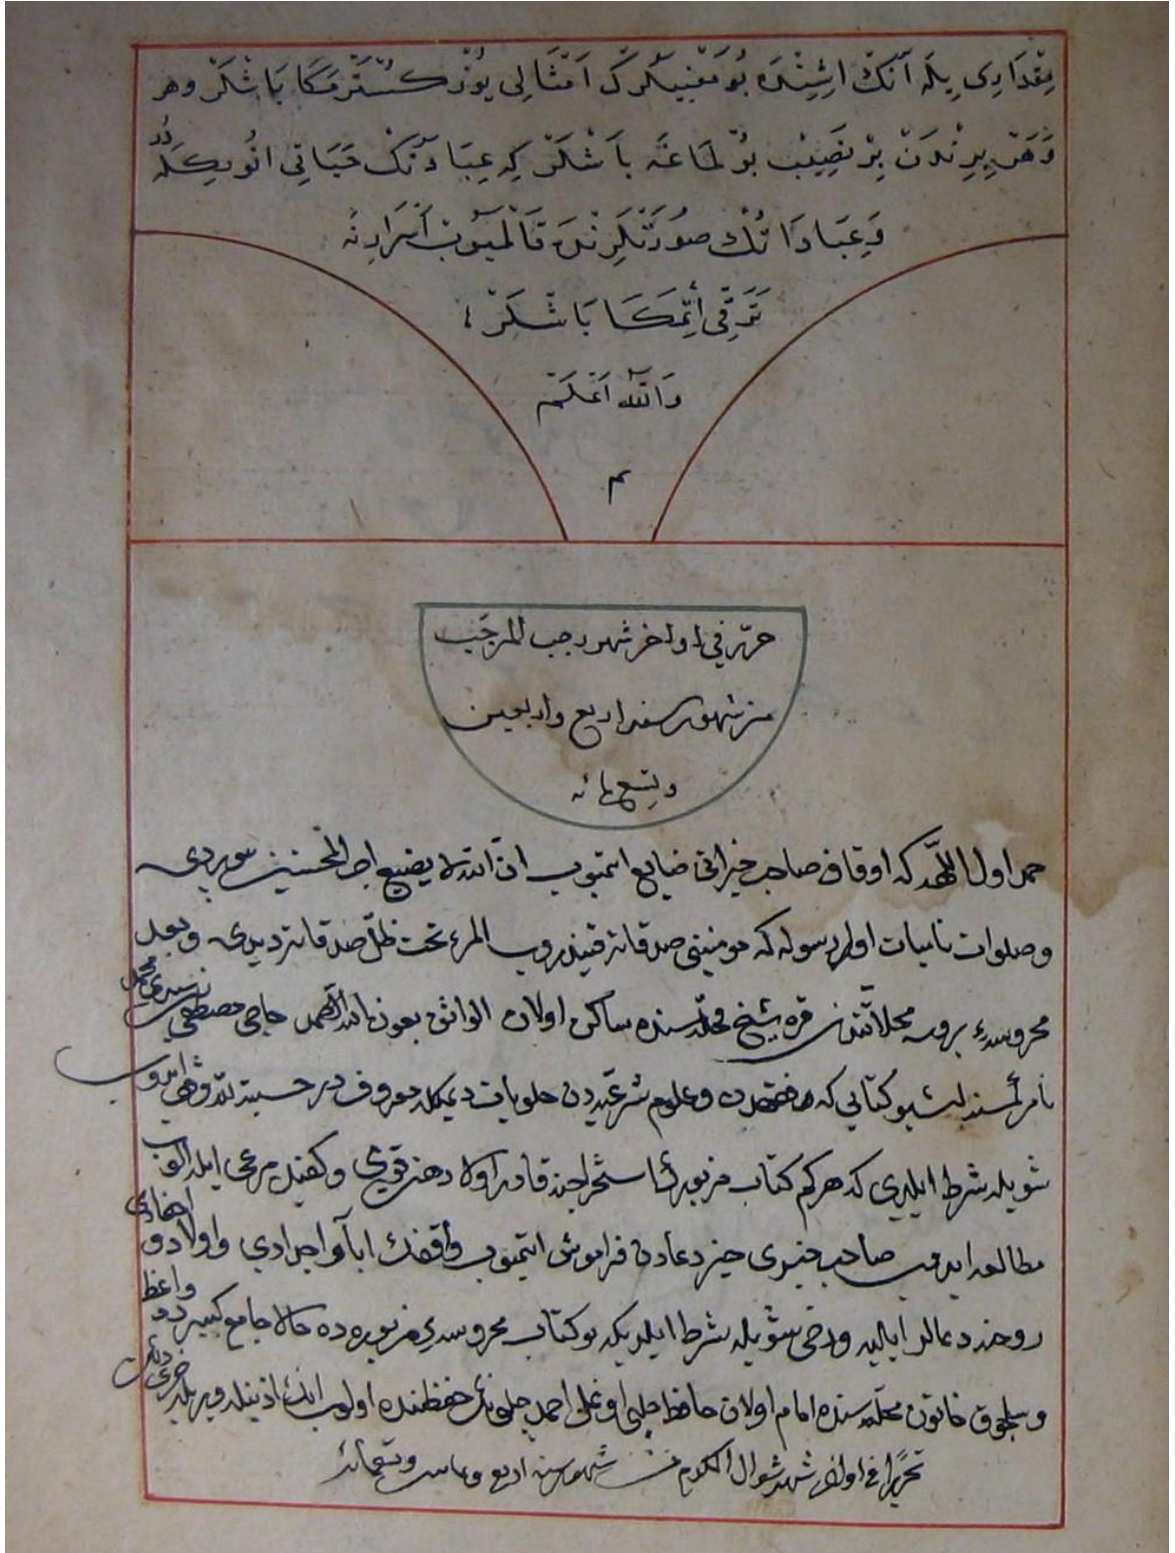 مِقْدَارِی یِلَه آنَكْ اِشِنْدَه بُو مَعْنِیلَرَكْ اَمْثَالِی یُوزْ كُسْتَرْمَكَا بَاشْلَرْ وهر
بِرِنْدَنْ بِرْ نَصِیبْ بُولْمَاغَه بَاشْلَرْ كِه عِبَادَتَكْ حَیَاتِی
وَ عِبَادَاتُكْ صُورَتْلَرِنْدَه قَالْمَیُوبْ اَسْرَارِنَه
تَرَقِّی اِتْمَكَا بَاشْلَرْ
وَاللّٰه اَعْلَمْ
م
حرّر فی اواخر شهر رجب المرجّب
من شهور سنه اربع واربعین
وتسعمائه
حمد اول اللّهه كه اوقاف صاحب خیراتی ضایع اتمیوب انّ الله لا یضیع اجر المحسنین بیوردی
وصلوات نامیات اول رسوله كه مومنینی صدقاته قیندروب المرء تحت ظلّ صدقاته دیدی وبعد
محروسهٔ بروسه محلاتندن قره شیخ محلّه سنده ساكن اولان الواثق بعون الله الصمد حاجی مصطفی بن سیدی محمد
نام كمسنه اشبو كتابی كه وعلوم شرعیّه دن حلویات دیمكله معروف در حسبة لله وقف ایدوب
شویله شرط ایلدی كه هر كیم كتاب مزبوری استخراجنه قادر اولا رهن قوی وكفیل مرعی ایله الوب
مطالعه ایدوب صاحب خیری خیر دعادن فراموش ایتمیوب واقفك ابا و اجدادی و اولاد و احفادی
روحنه دعالر ایلیه ودخی شویله شرط ایلدیكه بو كتاب محروسهٔ مزبوره ده حالا جامع كبیرده واعظ
وسلجوق خاتون محلّه سنده امام اولان حافظ چلبی اوغلی احمد چلبی نك حفظنده اولوب انك اذنیله ویریله
تحریرًا فی اوائل شهر شوال المكرم من شهور سنه اربع وتسعمائه